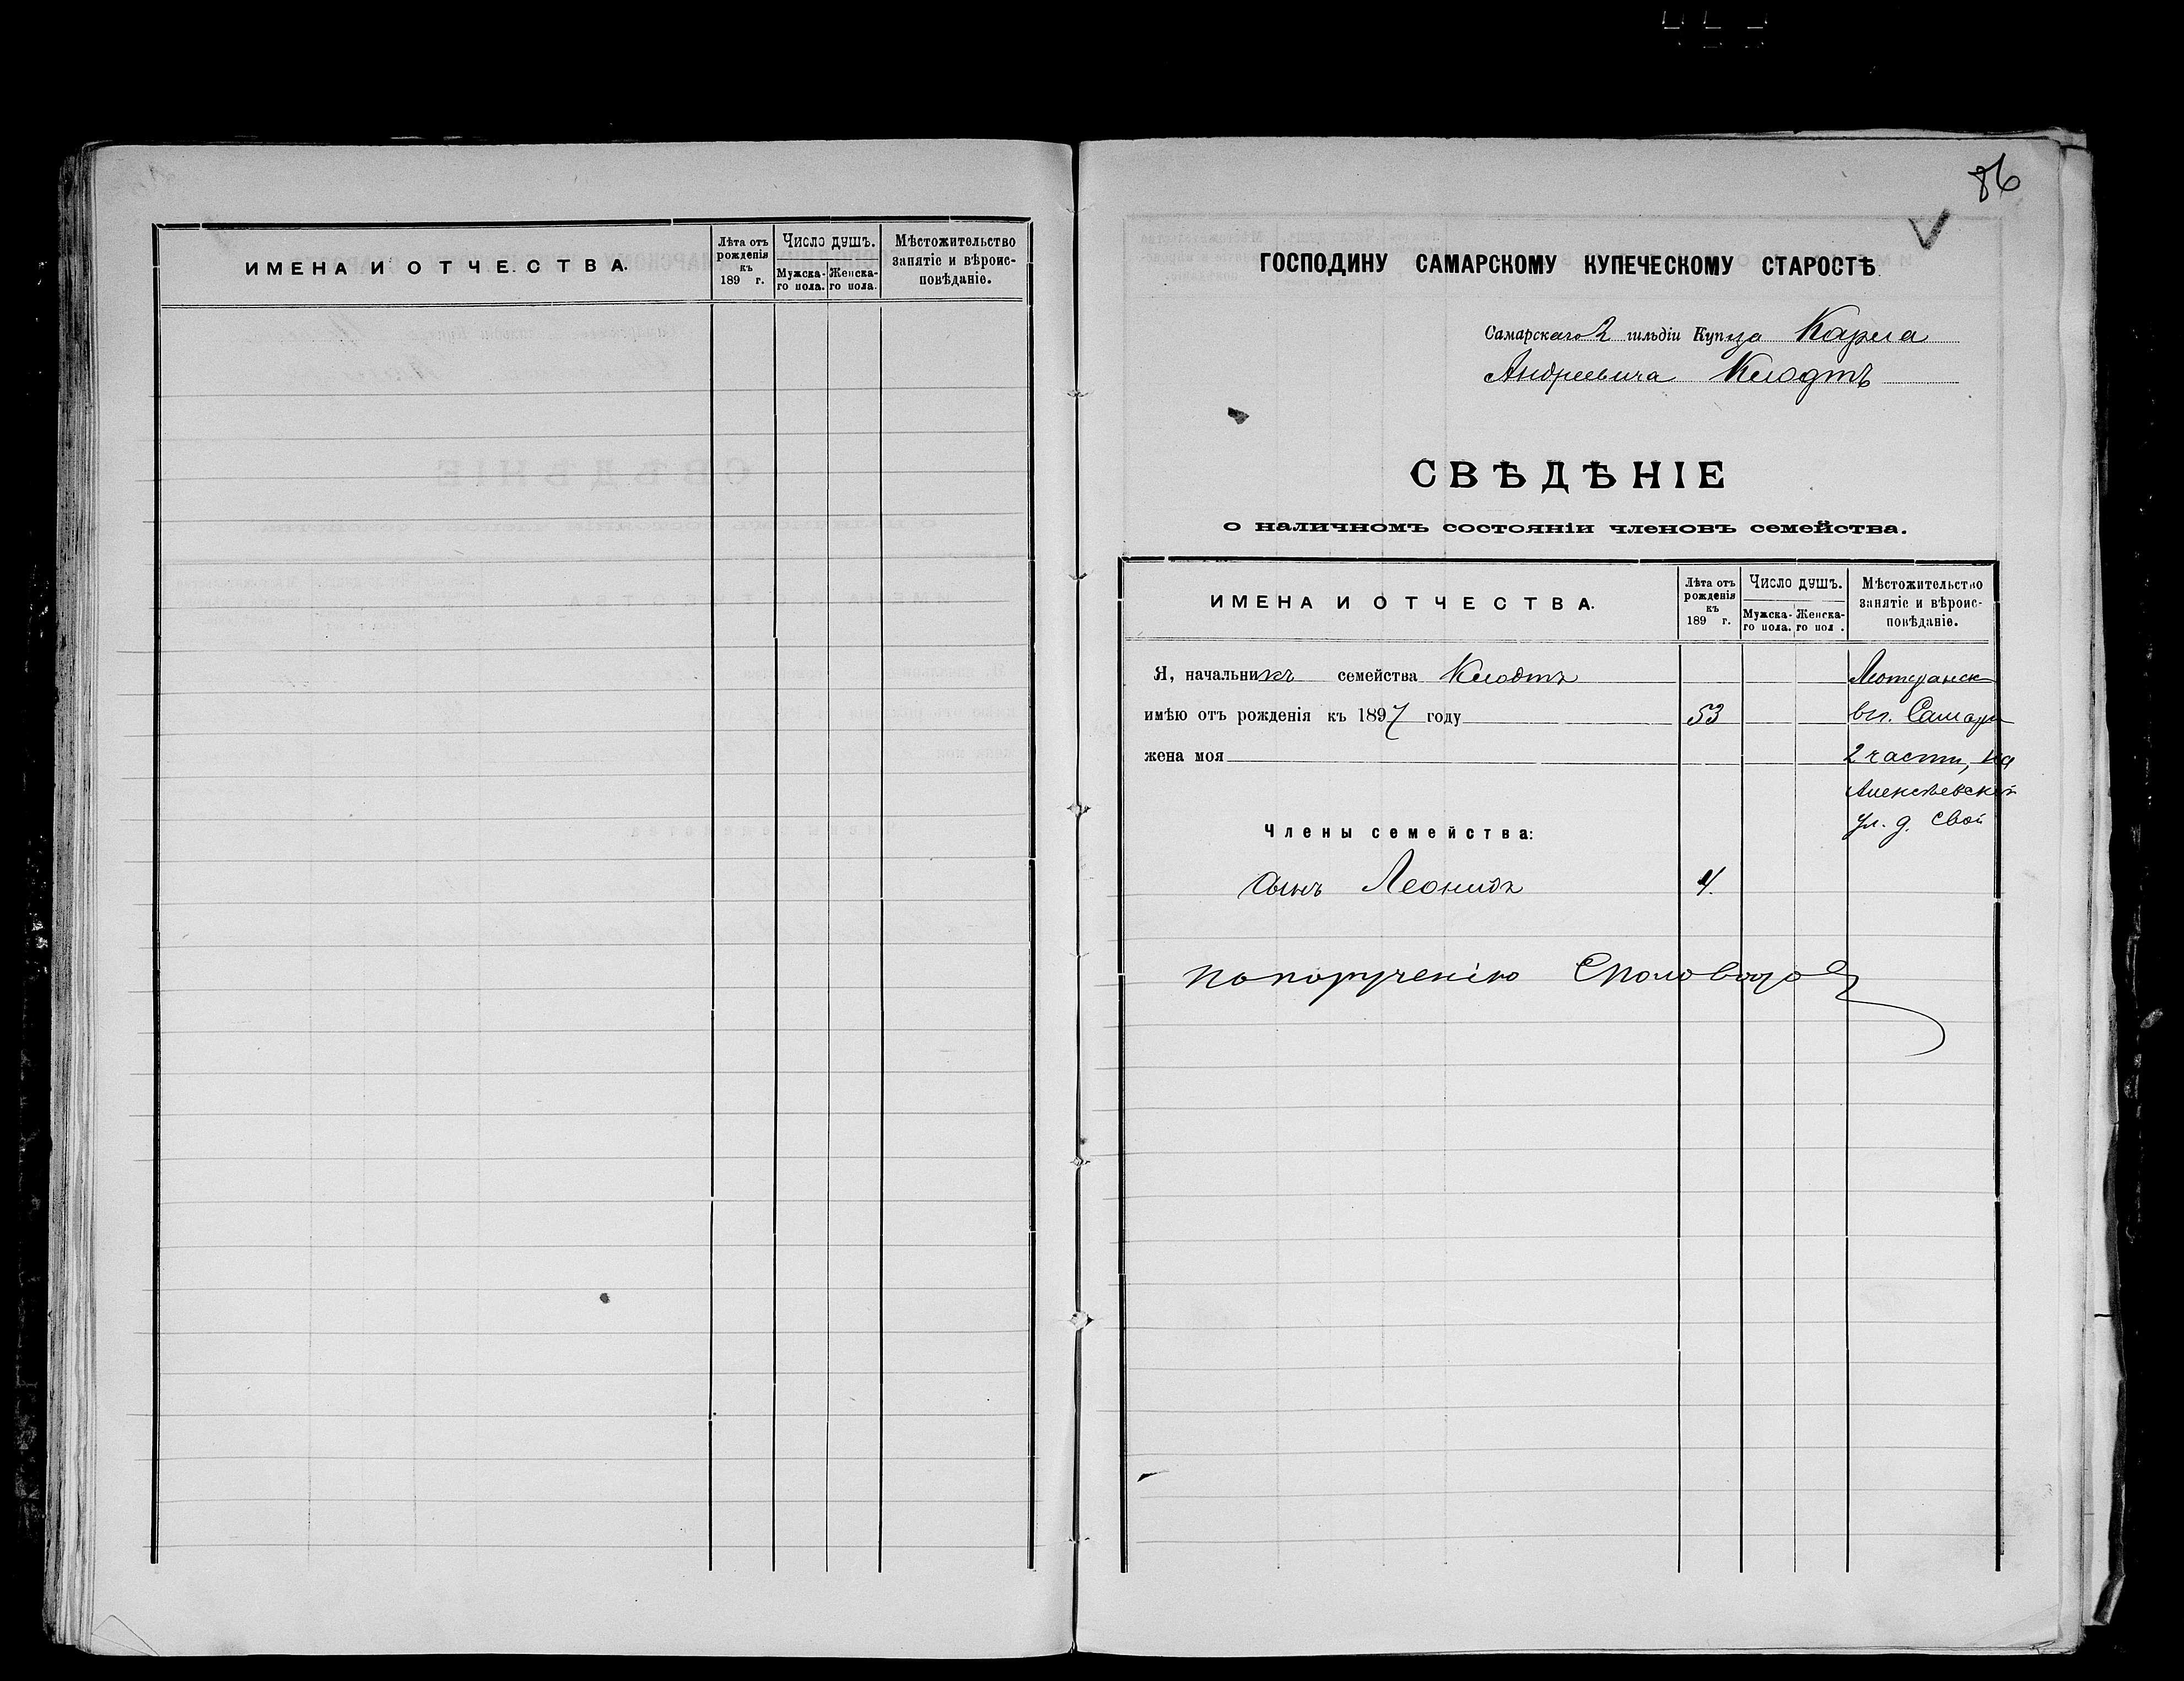 ИМЕНА И ОТЧЕСТВА.
Лѣта отъ рожденія къ 189 г.
Число душъ.
Мужска-го пола.
Женска-го пола.
Мѣстожительство занятіе и вѣроис-повѣданіе.
86
ГОСПОДИНУ САМАРСКОМУ КУПЕЧЕСКОМУ СТАРОСТѢ
Самарскаго 2 гильдіи Купца Карла
Андреевича Клодтъ
СВѢДѢНІЕ
о наличномъ состояніи членовъ семейства.
ИМЕНА И ОТЧЕСТВА.
Лѣта отъ рожденія къ 189 г.
Число душъ.
Мужска-го пола.
Женска-го пол .
Мѣстожительство занятіе и вѣроис-повѣданіе.
Я, начальникъ семейства Клодтъ
Лютеранск
имѣю отъ рожденія къ 1897 году 53
вг. Самары
жена моя
2 части, на
Алексѣевской
ул. д. свой
Члены семейства:
Сынъ Леонидъ 4.
по порученію